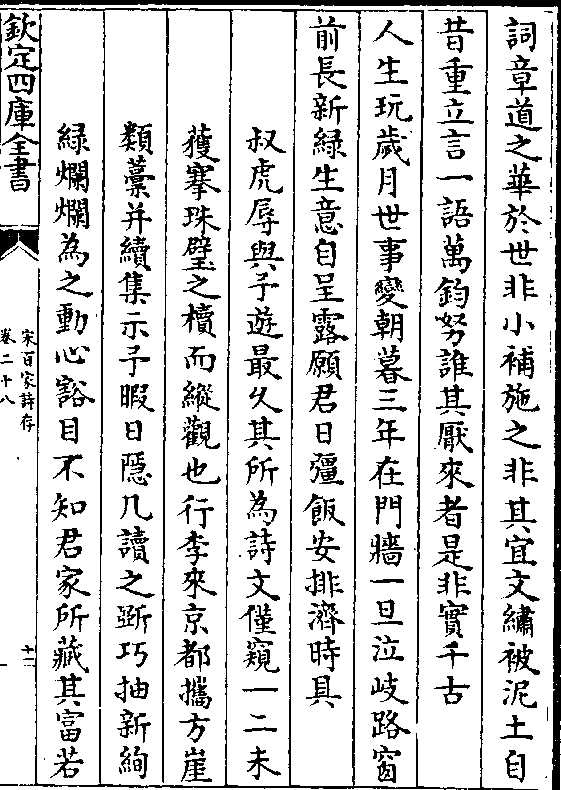 詞章道之華於世非小補施之非其宜文繡被泥土自
昔重立言一語萬鈞弩誰其厭來者是非實千古
人生玩歲月世事變朝暮三年在門牆一旦泣岐路窗
前長新緑生意自呈露願君日彊飯安排濟時具
叔虎辱與予遊最久其所為詩文僅窺一二未
獲搴珠璧之櫝而縱觀也行李來京都攜方崖
類藁并續集示予暇日隠几讀之斲巧抽新絢
緑爛爛為之動心豁目不知君家所藏其富若
欽定四庫全書
宋百家詩存
卷二十八
十二